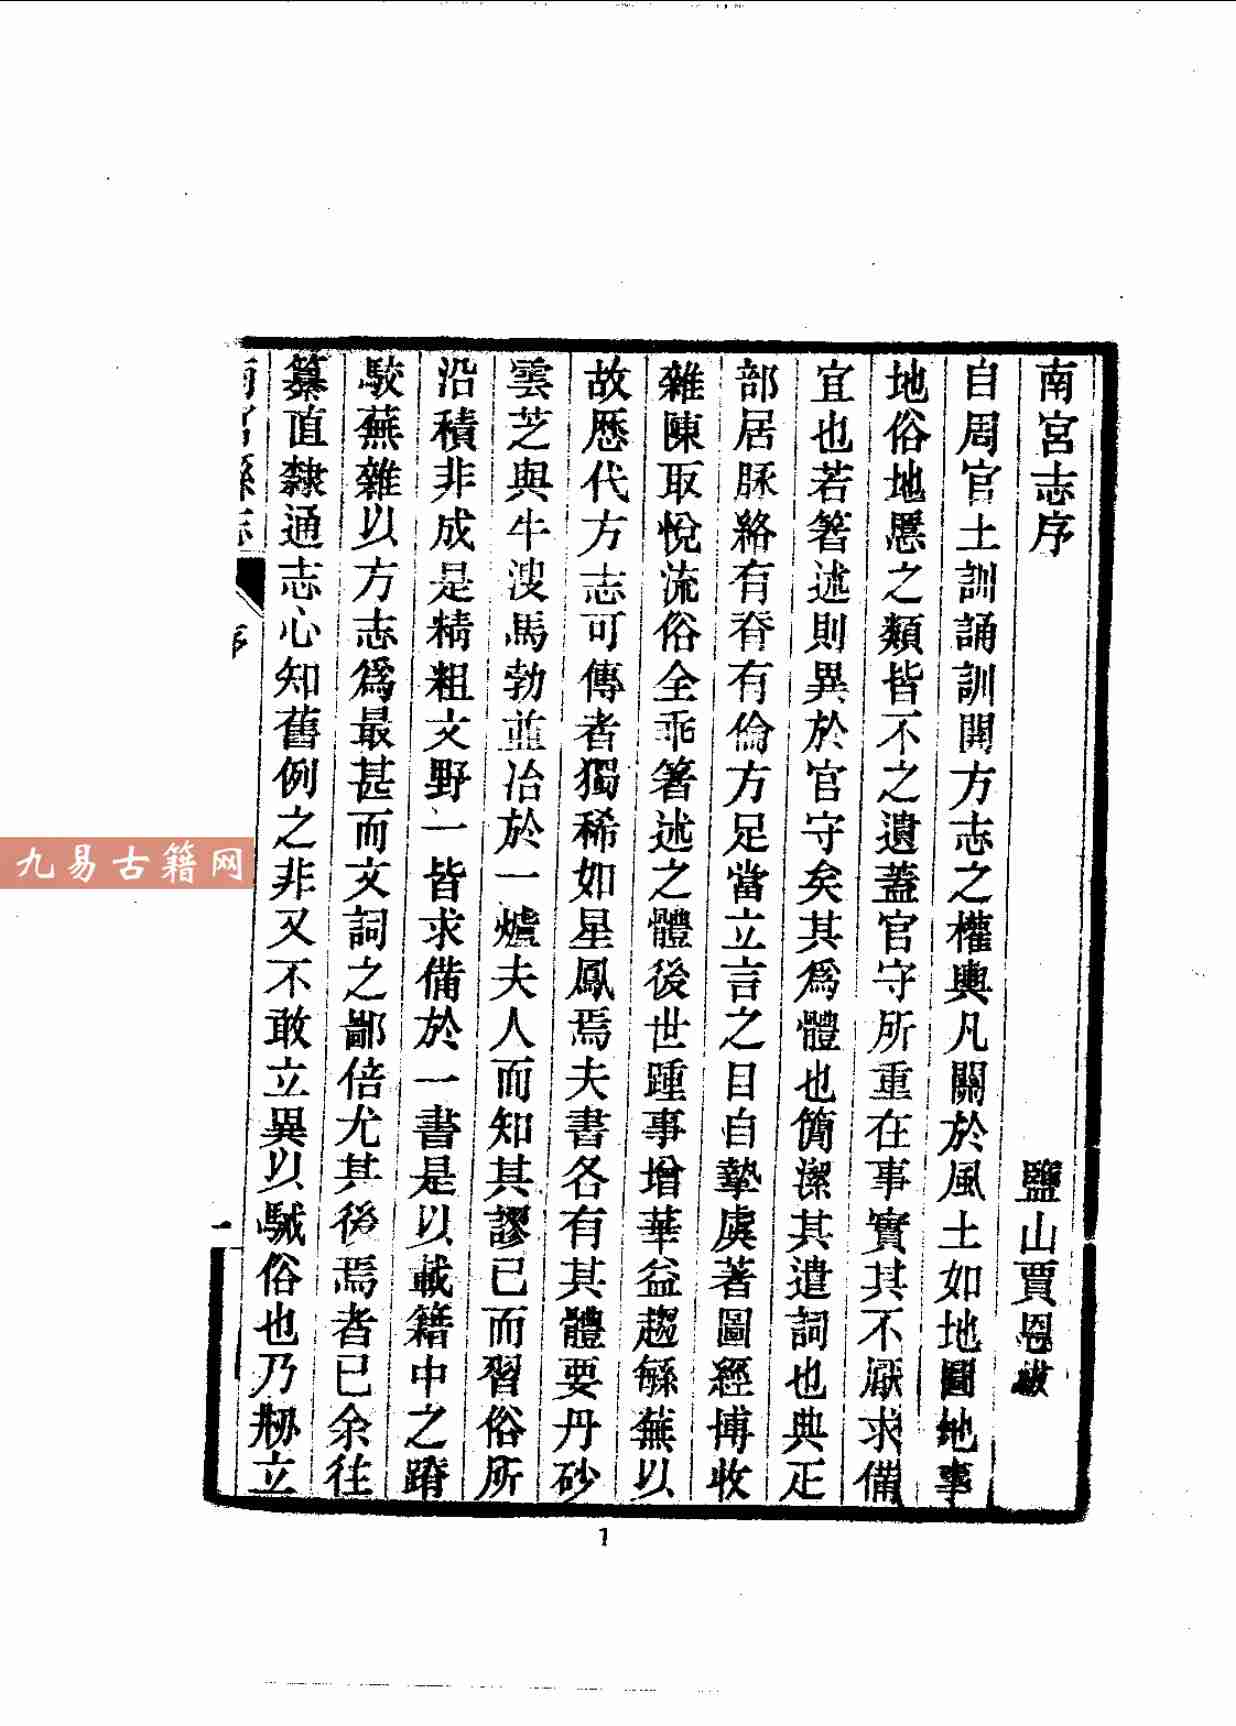 南宮志序
鹽山賈恩紱
自周官土訓誦訓開方志之權輿凡關於風土如地圖地事
地俗地慝之類皆不之遺蓋官守所重在事實其不厭求備
宜也若箸述則異於官守矣其爲體也簡潔其遣詞也典疋
部居脈絡有脊有倫方足當立言之目自摯虞著圖經博收
雜陳取悅流俗全乖箸述之體後世踵事增華益趨緐蕪以
故歷代方志可傳者獨稀如星鳳焉夫書各有其體要丹砂
雲芝與牛溲馬勃並冶於一爐夫人而知其謬已而習俗所
沿積非成是精粗文野一皆求備於一書是以載籍中之踳
駮蕪雜以方志爲最甚而文詞之鄙倍尤其後焉者已余往
纂直隸通志心知舊例之非又不敢立異以駴俗也乃刱立
南宮縣志
序
一
1
九易古籍网